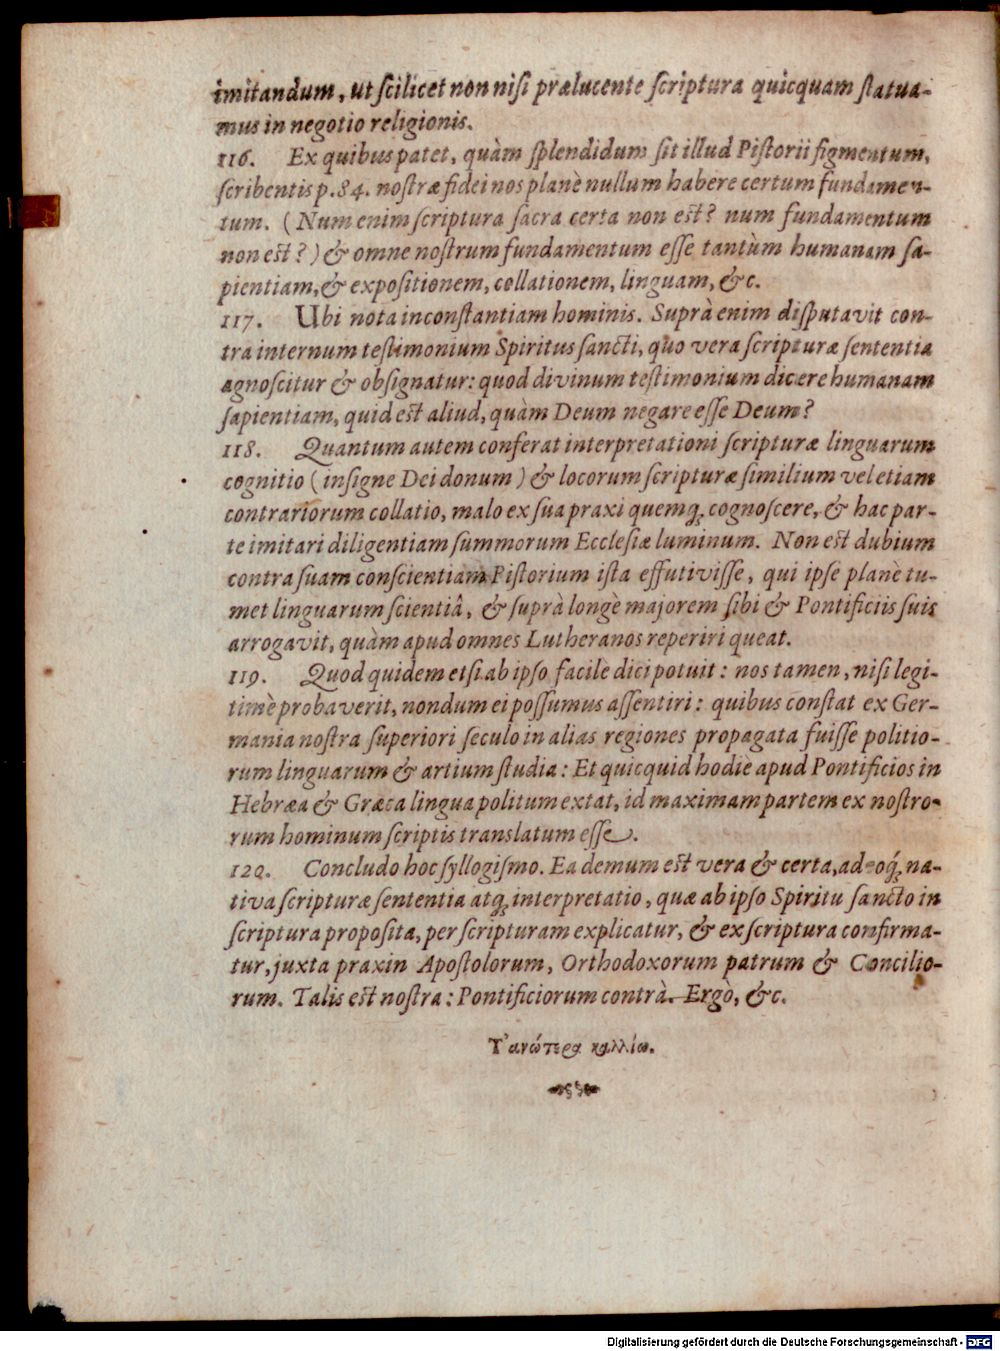 imitandum, ut ſcilicet non niſi prælucente ſcriptura quicquam ſtatua-
mus in negotio religionis.
116. Ex quibus patet, quàm ſplendidum ſit illud Piſtorii figmentum,
ſcribentis p. 84. noſtræ fidei nos planè nullum habere certum fundamen-
tum. (Num enim ſcriptura ſacra certa non est? num fundamentum
non est?) & omne noſtrum fundamentum eſſe tantùm humanam ſa-
pientiam, & expoſitionem, collationem, linguam, &c.
117. Ubi nota inconſtantiam hominis. Suprà enim diſputavit con-
tra internum teſtimonium Spiritus ſancti, quo vera ſcripturæ ſententia
agnoſcitur & obſignatur: quod divinum teſtimonium dicere humanam
ſapientiam, quid est aliud, quàm Deum negare eſſe Deum?
118. Quantum autem conferat interpretationi ſcripturæ linguarum
cognitio (inſigne Dei donum) & locorum ſcripturæ ſimilium vel etiam
contrariorum collatio, malo ex ſua praxi quemq; cognoſcere, & hac par-
te imitari diligentiam ſummorum Eccleſiæ luminum. Non est dubium
contra ſuam conſcientiam Piſtorium iſta effutiviſſe, qui ipſe planè tu-
met linguarum ſcientiâ, & ſuprà longè majorem ſibi & Pontificiis ſuis
arrogavit, quàm apud omnes Lutheranos reperiri queat.
119. Quod quidem etſi ab ipſo facile dici potuit: nos tamen, niſi legi-
timè probaverit, nondum ei poſſumus aſſentiri: quibus conſtat ex Ger-
mania noſtra ſuperiori ſeculo in alias regiones propagata fuiſſe politio-
rum linguarum & artium ſtudia: Et quicquid hodiè apud Pontificios in
Hebræa & Græca lingua politum extat, id maximam partem ex noſtro-
rum hominum ſcriptis translatum eſſe.
120. Concludo hoc ſyllogiſmo. Ea demum est vera & certa, adeoq́; na-
tiva ſcripturæ ſententia atq; interpretatio, quæ ab ipſo Spiritu ſancto in
ſcriptura propoſita, per ſcripturam explicatur, & ex ſcriptura confirma-
tur, juxta praxin Apoſtolorum, Orthodoxorum patrum & Concilio-
rum. Talis est noſtra: Pontificiorum contrà. Ergò, &c.
Τ' ανώτερα καλλίω.
Digitalisierung gefördert durch die Deutsche Forschungsgemeinschaft - DFG